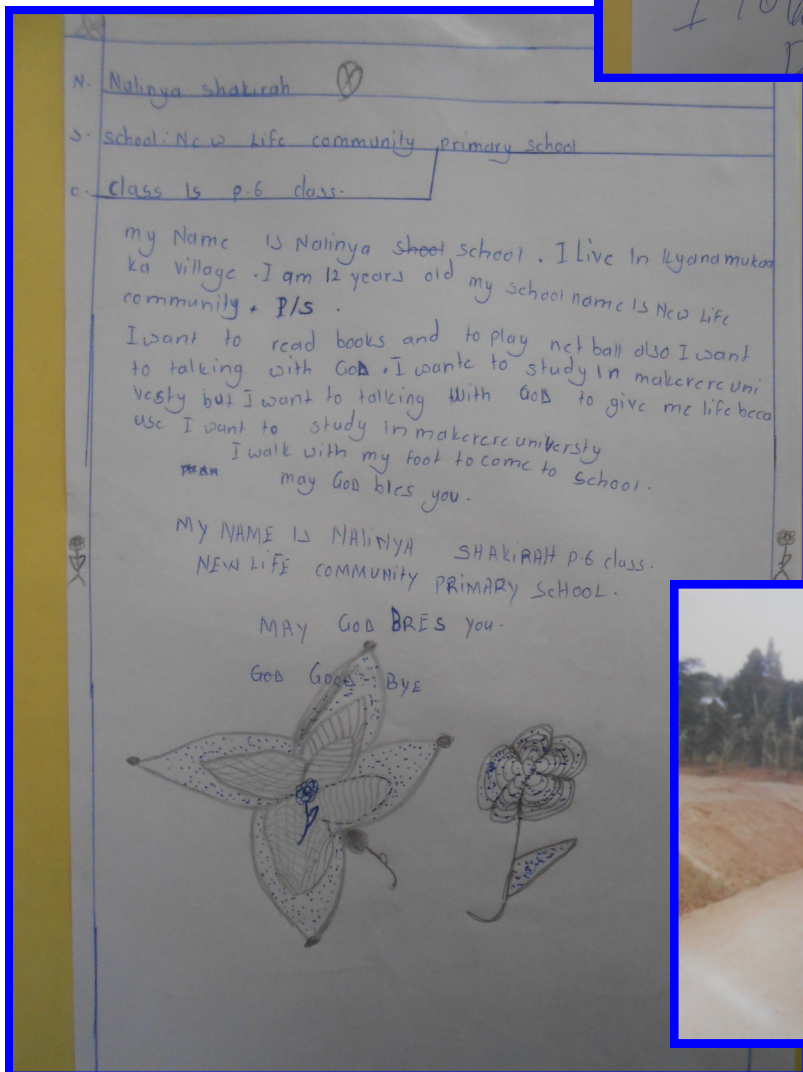 I
N. Nalinya shakirah
S. school: New Life community primary school
C. class Is p.6 class.
my Name Is Nalinya shool school. I Live In kyanamukaa
ka village. I am 12 years old my school name Is New Life
community. P/S.
I want to read books and to play net ball also I want
to talking with GOD. I wante to study In makerere uni
vesty but I want to talking with GOD to give me life beca
use I want to study In makerere universty
I walk with my foot to come to school.
may GOD bles you.
MY NAME IS NALINYA SHAKIRAH P.6 class.
NEW LIFE COMMUNITY PRIMARY SCHOOL.
MAY GOD BRES you.
GOD GOOD BYE